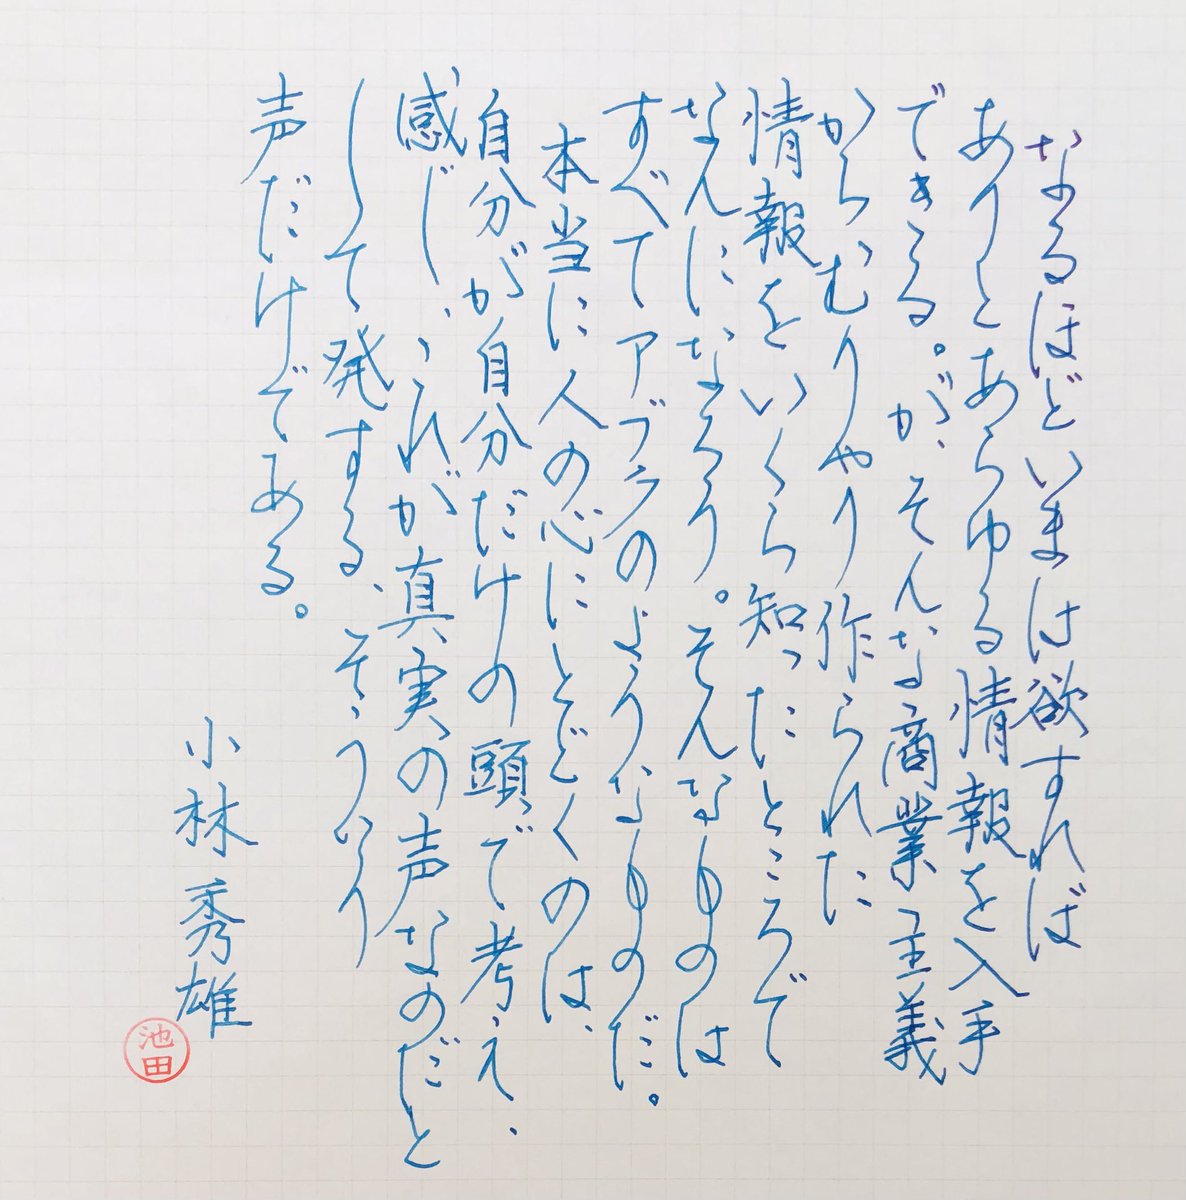 なるほどいまは欲すれば
ありとあらゆる情報を入手
できる。が、そんな商業主義
からむりやり作られた
情報をいくら知ったところで
なんになろう。そんなものは
すべてアブラのようなものだ。
本当に人の心にとどくのは、
自分が自分だけの頭で考え、
感じ、これが真実の声なのだと
して発する、そういう
声だけである。
小林秀雄
池田